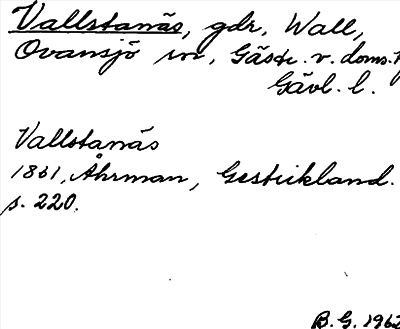 Vallstanäs, gdr, Wall,
Ovansjö sn, Gästr. v. doms.
Gävl. l.
Vallstanäs
1861, Åhrman, Gestrikland.
s. 220.
B. G. 1962